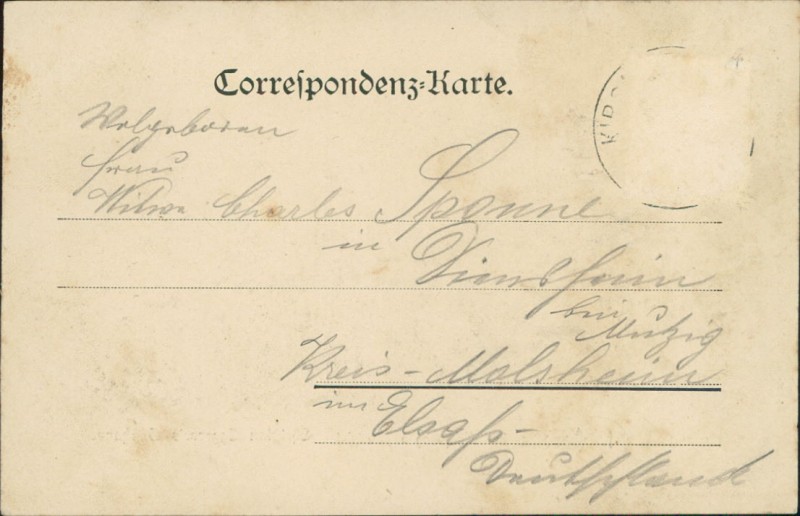 Correspondenz-Karte.
KIRC
Wolgeboren
Frau
Witwe Charles Sponne
in
bei
Mutzig
Kreis-Molsheim
im Elsaß-
Deutschland